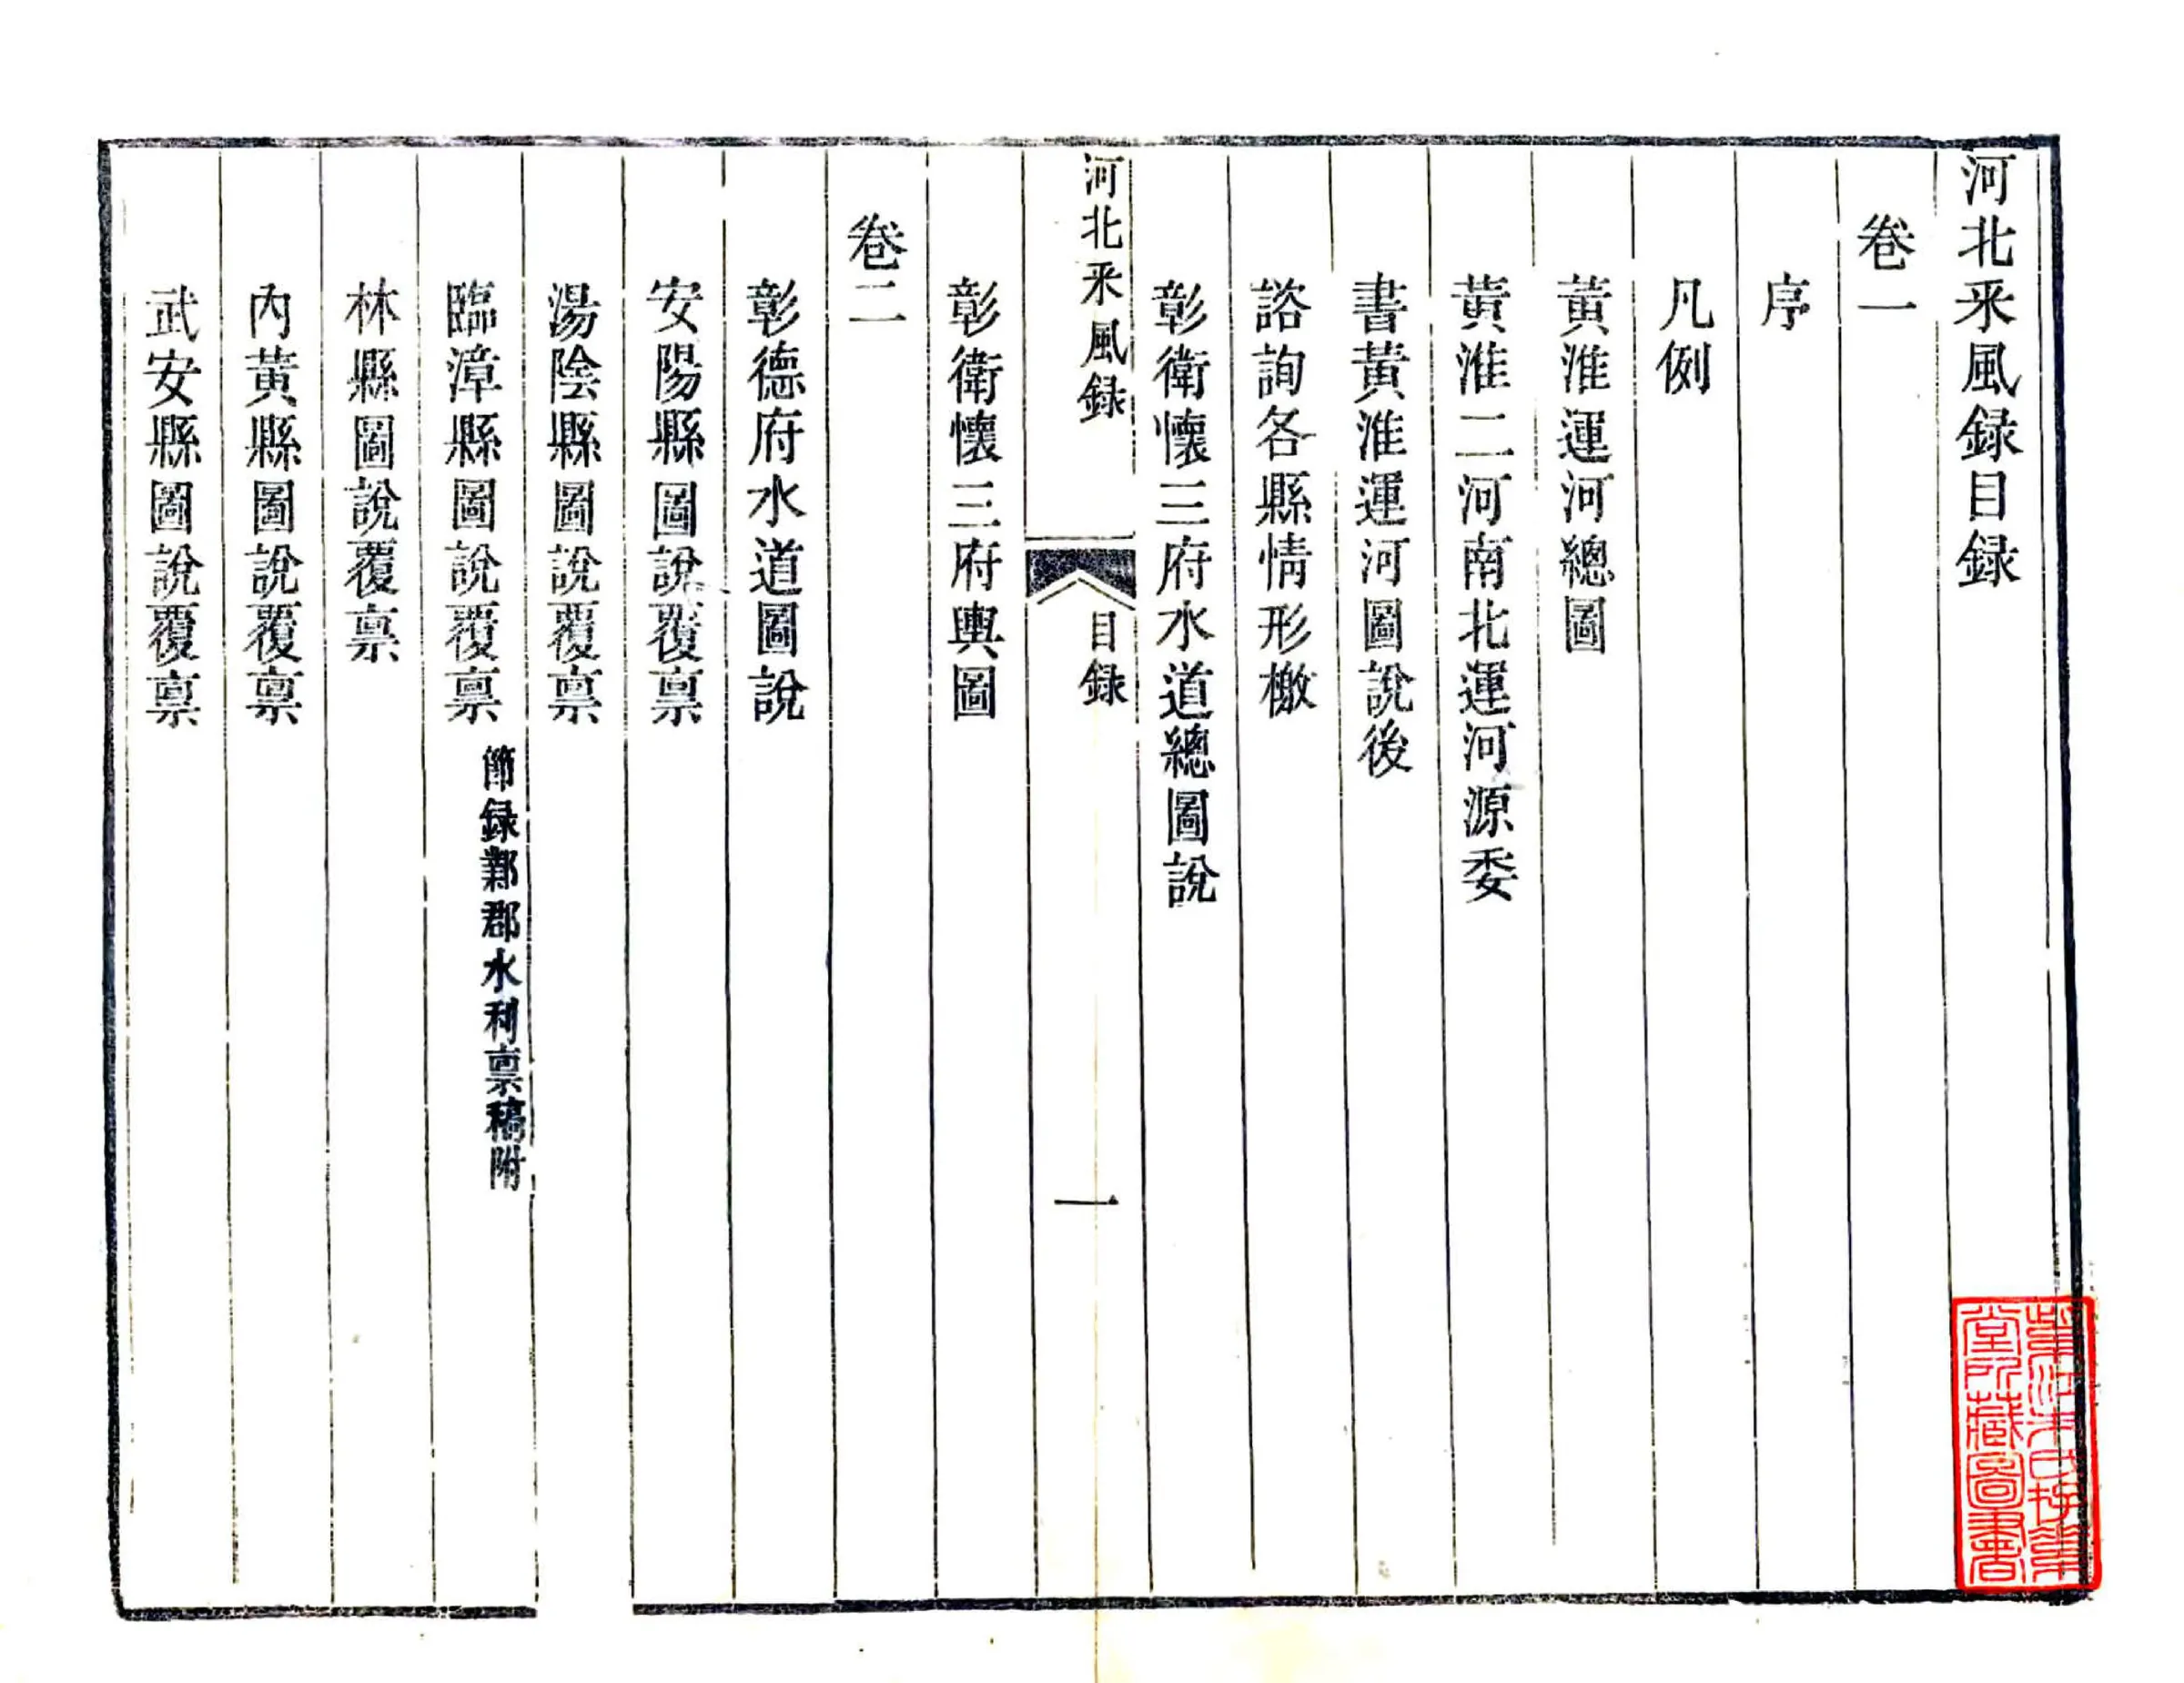 河北采風録目録
卷一
序
凡例
黃淮運河總圖
黃淮二河南北運河源委
書黃淮運河圖說後
諮詢各縣情形檄
彰衛懷三府水道總圖說
河北采風録
目録
一
彰衛懷三府輿圖
卷二
彰德府水道圖說
安陽縣圖說覆禀
湯陰縣圖說覆禀
臨漳縣圖說覆禀 節録鄴郡水利禀稿附
林縣圖說覆禀
內黃縣圖說覆禀
武安縣圖說覆禀
堂所藏圖書